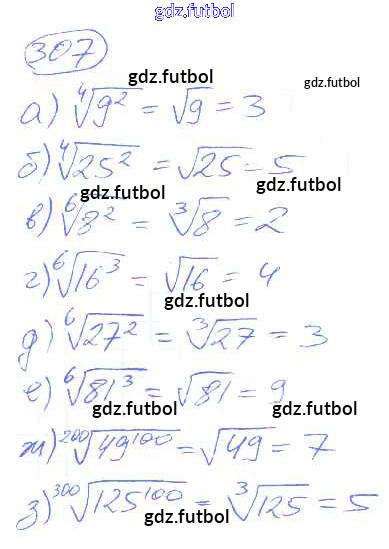 gdz.futbol
307
gdz.futbol
gdz.futbol
а) ⁴√9² = √9 = 3
б) ⁴√25² = √25 = 5
gdz.futbol gdz.futbol
в) ⁶√8² = ³√8 = 2
gdz.futbol
г) ⁶√16³ = √16 = 4
gdz.futbol
д) ⁶√27² = ³√27 = 3
gdz.futbol
е) ⁶√81³ = √81 = 9
gdz.futbol gdz.futbol
ж) ²⁰⁰√49¹⁰⁰ = √49 = 7
gdz.futbol
з) ³⁰⁰√125¹⁰⁰ = ³√125 = 5
gdz.futbol